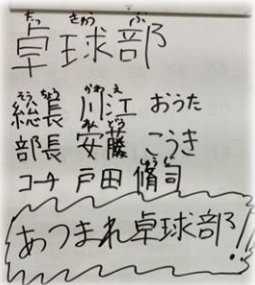 卓球部
総長 川江 おうた
部長 安藤 こうき
コーチ 戸田 脩司
あつまれ卓球部!